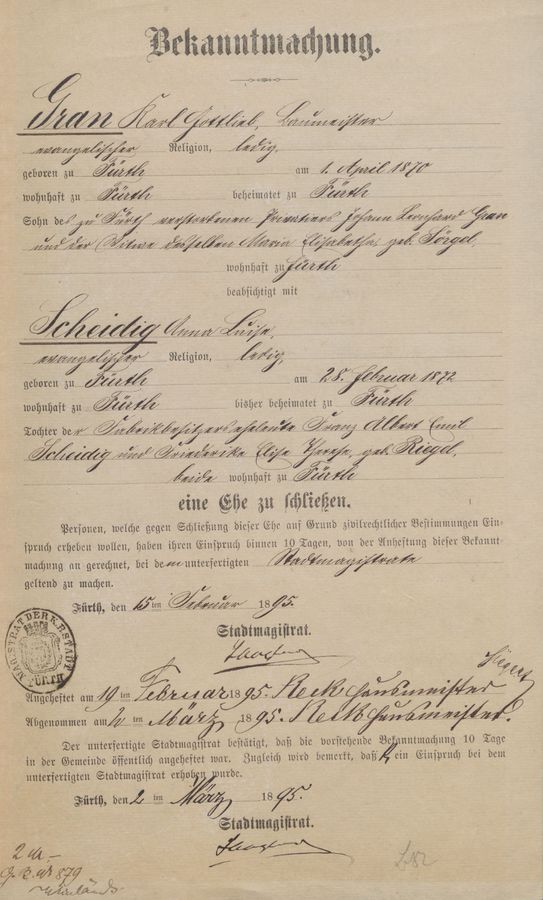 Bekanntmachung.
Gran Karl Gottlieb, Baumeister
evangelischer Religion, ledig,
geboren zu Fürth am 1. April 1870
wohnhaft zu Fürth beheimatet zu Fürth
Sohn des zu Fürth verstorbenen Privatiers Johann Leonhard Gran
und der Witwe desselben Maria Elisabetha geb. Sörgel,
wohnhaft zu Fürth
beabsichtigt mit
Scheidig Anna Luise,
evangelischer Religion, ledig,
geboren zu Fürth am 28. Februar 1872
wohnhaft zu Fürth bisher beheimatet zu Fürth
Tochter der Fabrikbesitzerseheleute Franz Albert Emil
Scheidig und Friederike Elise Therese, geb. Riegel,
beide wohnhaft zu Fürth
eine Ehe zu schließen.
Personen, welche gegen Schließung dieser Ehe auf Grund zivilrechtlicher Bestimmungen Ein-
spruch erheben wollen, haben ihren Einspruch binnen 10 Tagen, von der Anheftung dieser Bekannt-
machung an gerechnet, bei dem unterfertigten Stadtmagistrate
geltend zu machen.
Fürth, den 15 ten Februar 1895.
Stadtmagistrat.
MAGISTRAT DER K.B. STADT FÜRTH
Angeheftet am 19 ten Februar 1895. Reck Hausmeister
Abgenommen am 2 ten März 1895. Reck Hausmeister.
Der unterfertigte Stadtmagistrat bestätigt, daß die vorstehende Bekanntmachung 10 Tage
in der Gemeinde öffentlich angeheftet war. Zugleich wird bemerkt, daß kein Einspruch bei dem
unterfertigten Stadtmagistrat erhoben wurde.
Fürth, den 2 ten März 1895.
Stadtmagistrat.
2 M. –
879